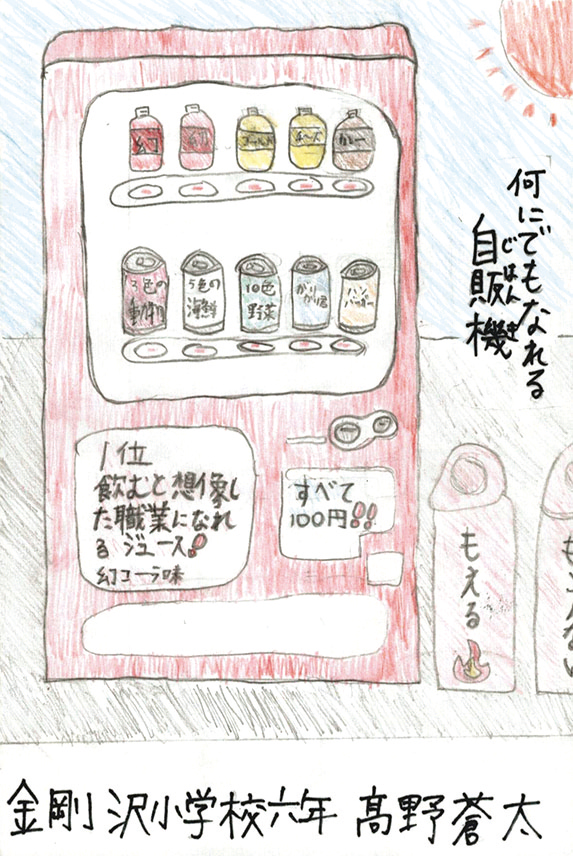 何にでもなれる
自販機
じはんき
幻
幻
ゴールド
チーズ
カレー
3色の
動物
5色の
海鮮
10色
野菜
がり
がり君
ハン
バーガー
1位
飲むと想像し
た職業になれ
る ジュース!!
幻コーラ味
すべて
100円!!
もえる
もえない
金剛沢小学校六年 髙野蒼太